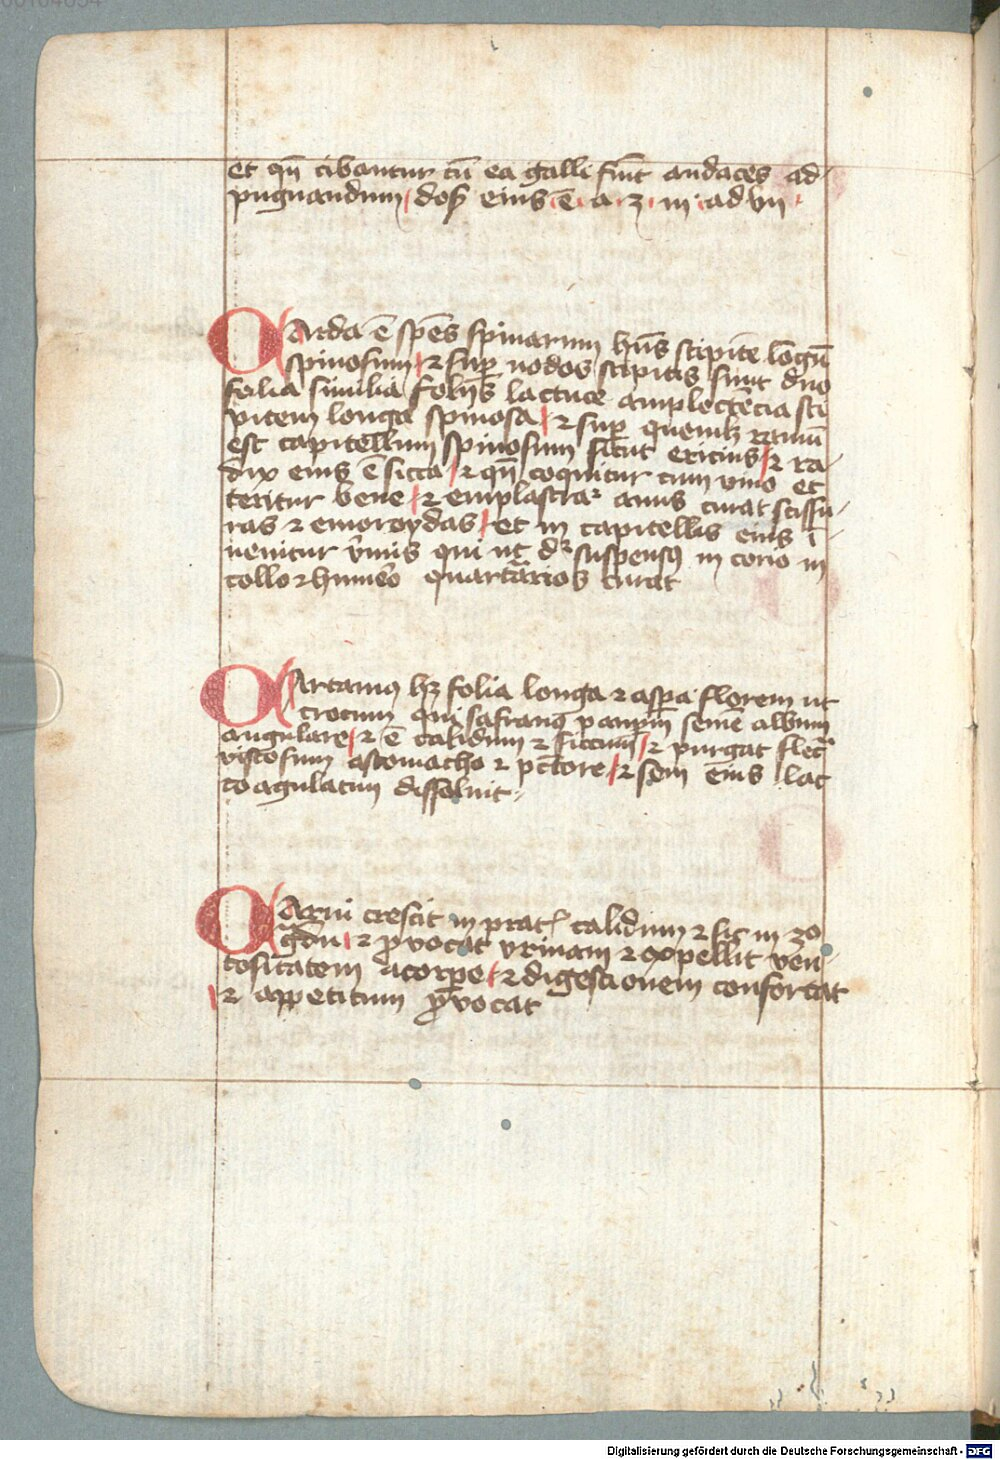 et qn̄ cibantur cū ea galli fiūt audaces ad
pugnandum dos̄ eius ē a ʒ iii ad vii
CArda ē spēs spinarum hn̄s stipitē longū
spinosum ⁊ sup nodos stipitis sunt duo
folia similia folijs lactuce amplectēcia sti
pitem longa spinosa ⁊ sup quemlꝫ ramū
est capitellum spinosum sicut ericius ⁊ ra-
dix eius ē sicca ⁊ qn̄ coquitur cum vino et
teritur bene ⁊ emplastraꝛ anus curat scissu-
ras ⁊ emoroydas et in capitellis eius ī
uenitur v̄mis qui ut dꝛ suspensꝰ in corio in
collo ⁊ humeo quartārios curat
CArtamꝰ hꝫ folia longa ⁊ aspa florem ut
crocum qui safranꝰ paupm semē album
angulare ⁊ ē calidum ⁊ siccum ⁊ purgat flecā
viscosum astomacho ⁊ pctore ⁊ sem eius lac
coagulatum dissoluit
CArui crescit in pratꝭ calidum ⁊ sic̄ in 3o
gdu ⁊ ꝓvocat vrinam ⁊ expellit ven-
tositatem acorpe ⁊ digestionem confortat
⁊ appetitum ꝓvocat
Digitalisierung gefördert durch die Deutsche Forschungsgemeinschaft - DFG